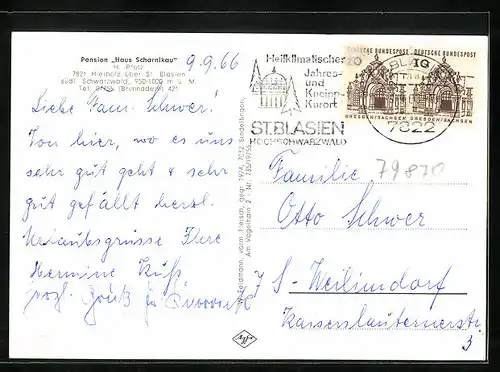 Pension „Haus Scharnikau"
7821 Hierholz über St. Blasien
südl. Schwarzwald, 950-1000 m ü. M.
(Brunnadern) 421
9.9.66
Liebe Fam. Schwer!
Von hier, wo es uns
sehr gut geht & sehr
gut gefällt herzl.
Urlaubsgrüsse Ihre
Hermine Kuß
Heilklimatischer
Jahres-
und
Kneipp-
Kurort
ST. BLASIEN
HOCHSCHWARZWALD
7822
DEUTSCHE BUNDESPOST DEUTSCHE BUNDESPOST
DRESDEN/SACHSEN DRESDEN/SACHSEN
79870
Familie
Otto Schwer
7 S-Weilimdorf
Kasserslauternerstr.
3
Am Vogelhain 2
Agfa